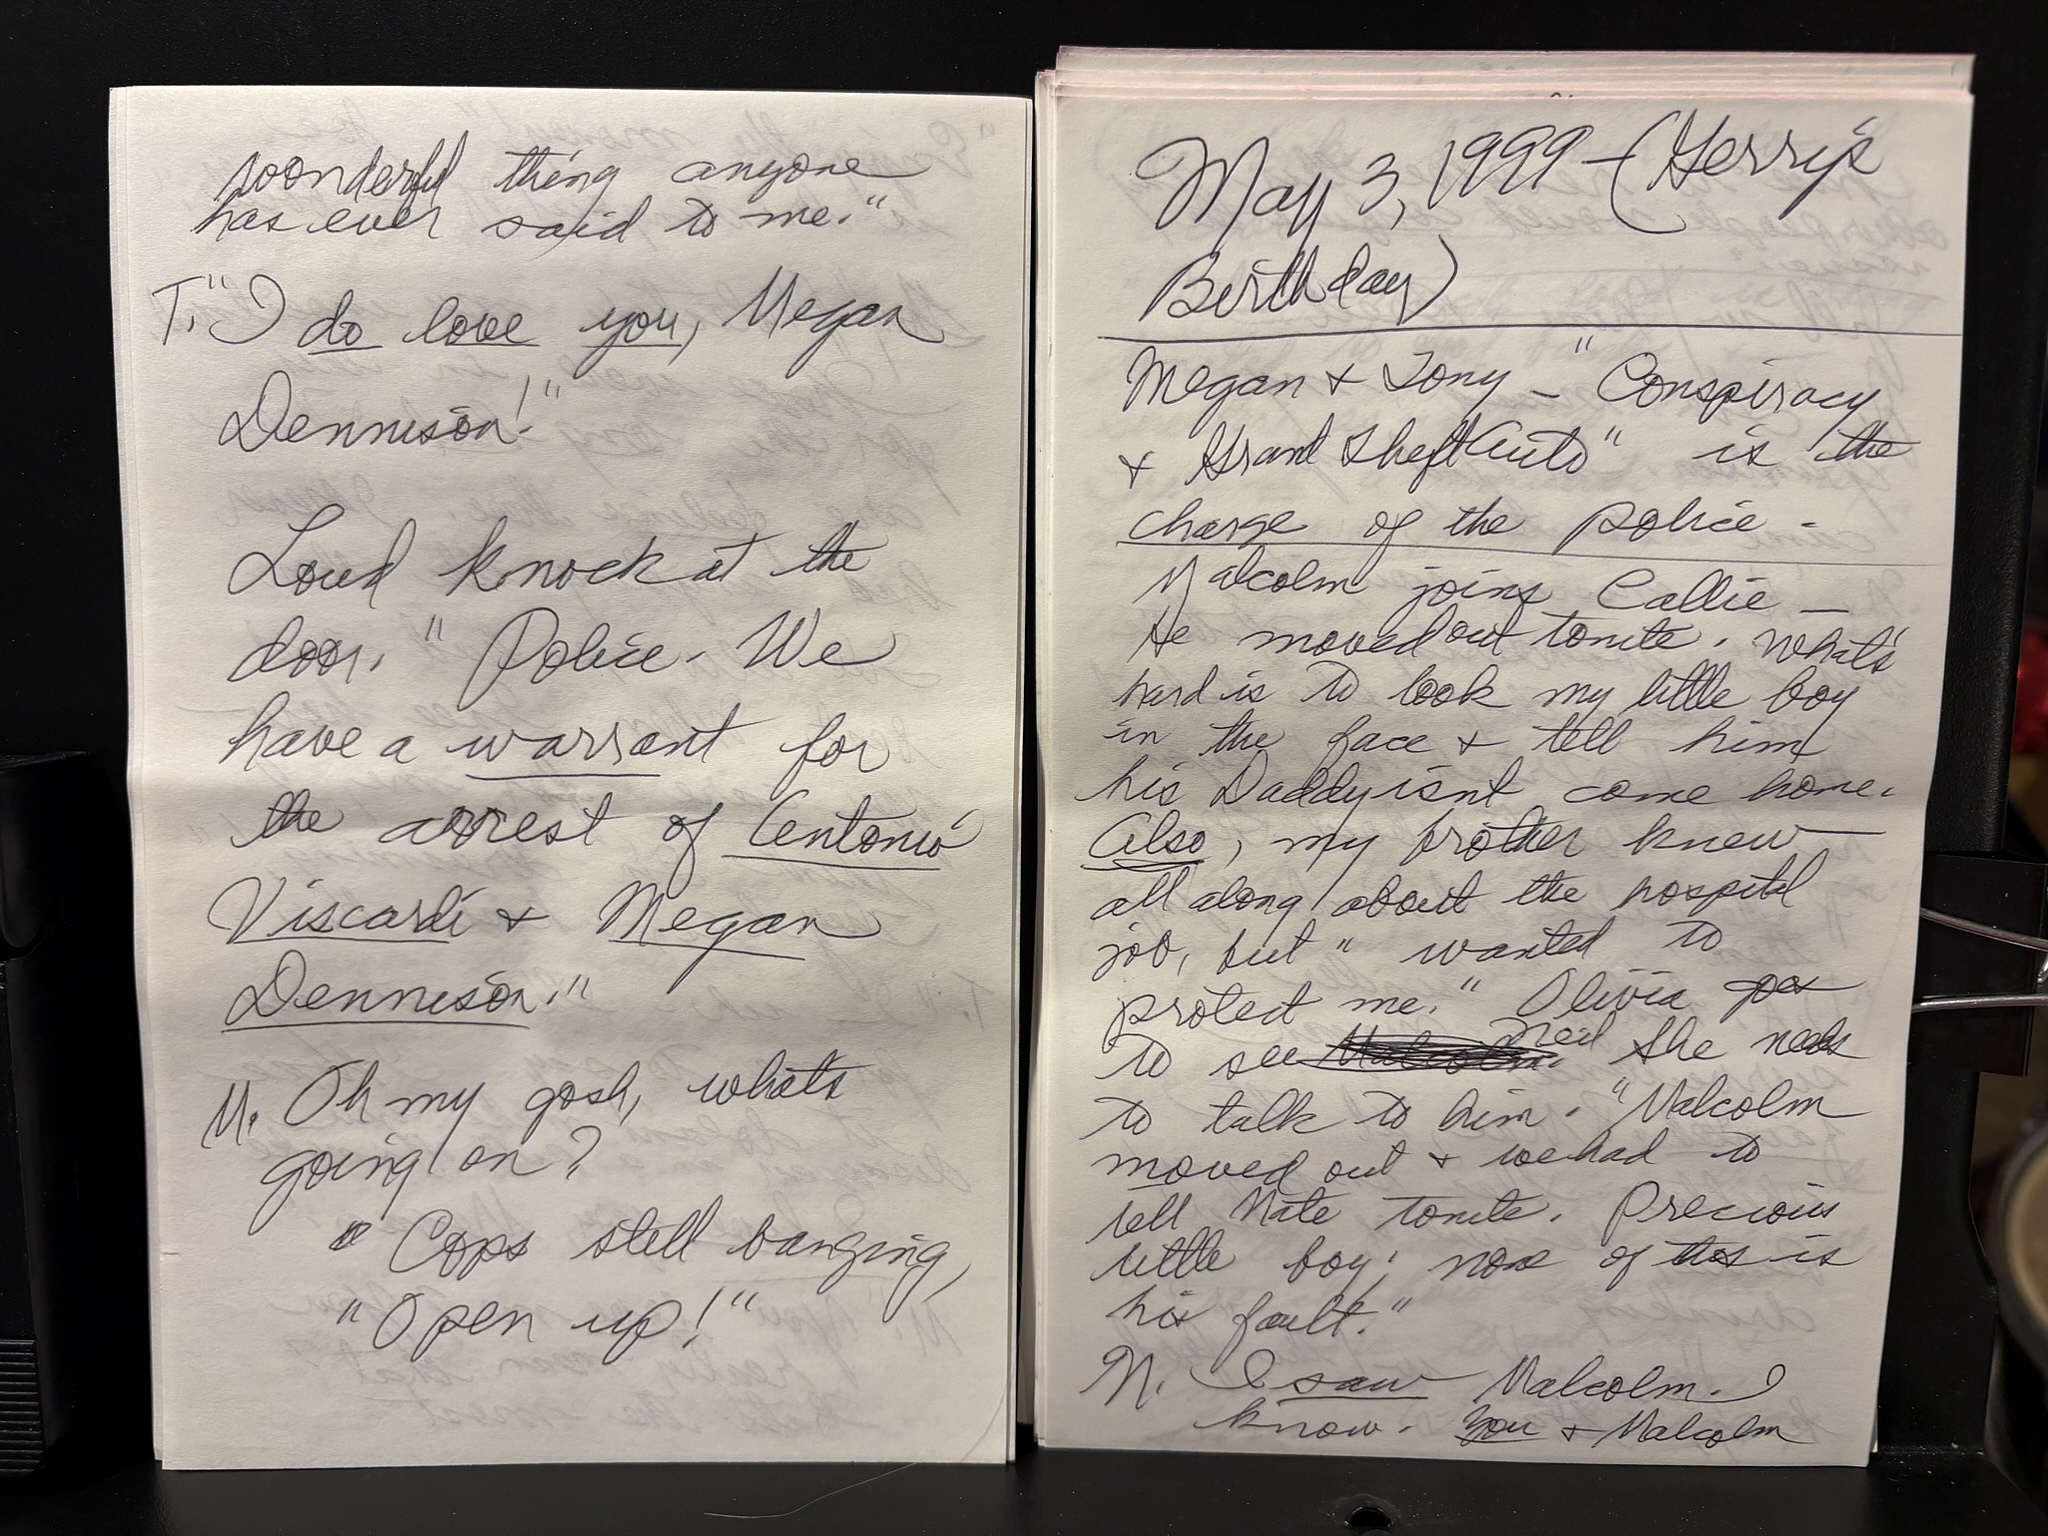 wonderful thing anyone
has ever said to me."
T. "I do love you, Megan
Dennison!"
Loud knock at the
door. "Police. We
have a warrant for
the arrest of Antonio
Viscardi & Megan
Dennison."
M. Oh my gosh, what's
going on?
" Cops still banging,
"Open up!"
May 3, 1999 - (Gerry's
Birthday)
Megan & Tony - "Conspiracy
& Grand Theft Auto" is the
charge of the police -
Malcolm joins Callie -
He moved out tonite. What's
hard is to look my little boy
in the face & tell him
his Daddy isn't come home.
Also, my brother knew
all along about the hospital
job, but "wanted to
protect me." Olivia goes
to see Malcolm Neil She needs
to talk to him. "Malcolm
moved out & we had to
tell Nate tonite. Precious
little boy; none of this is
his fault."
N. I saw Malcolm. I
know. You & Malcolm